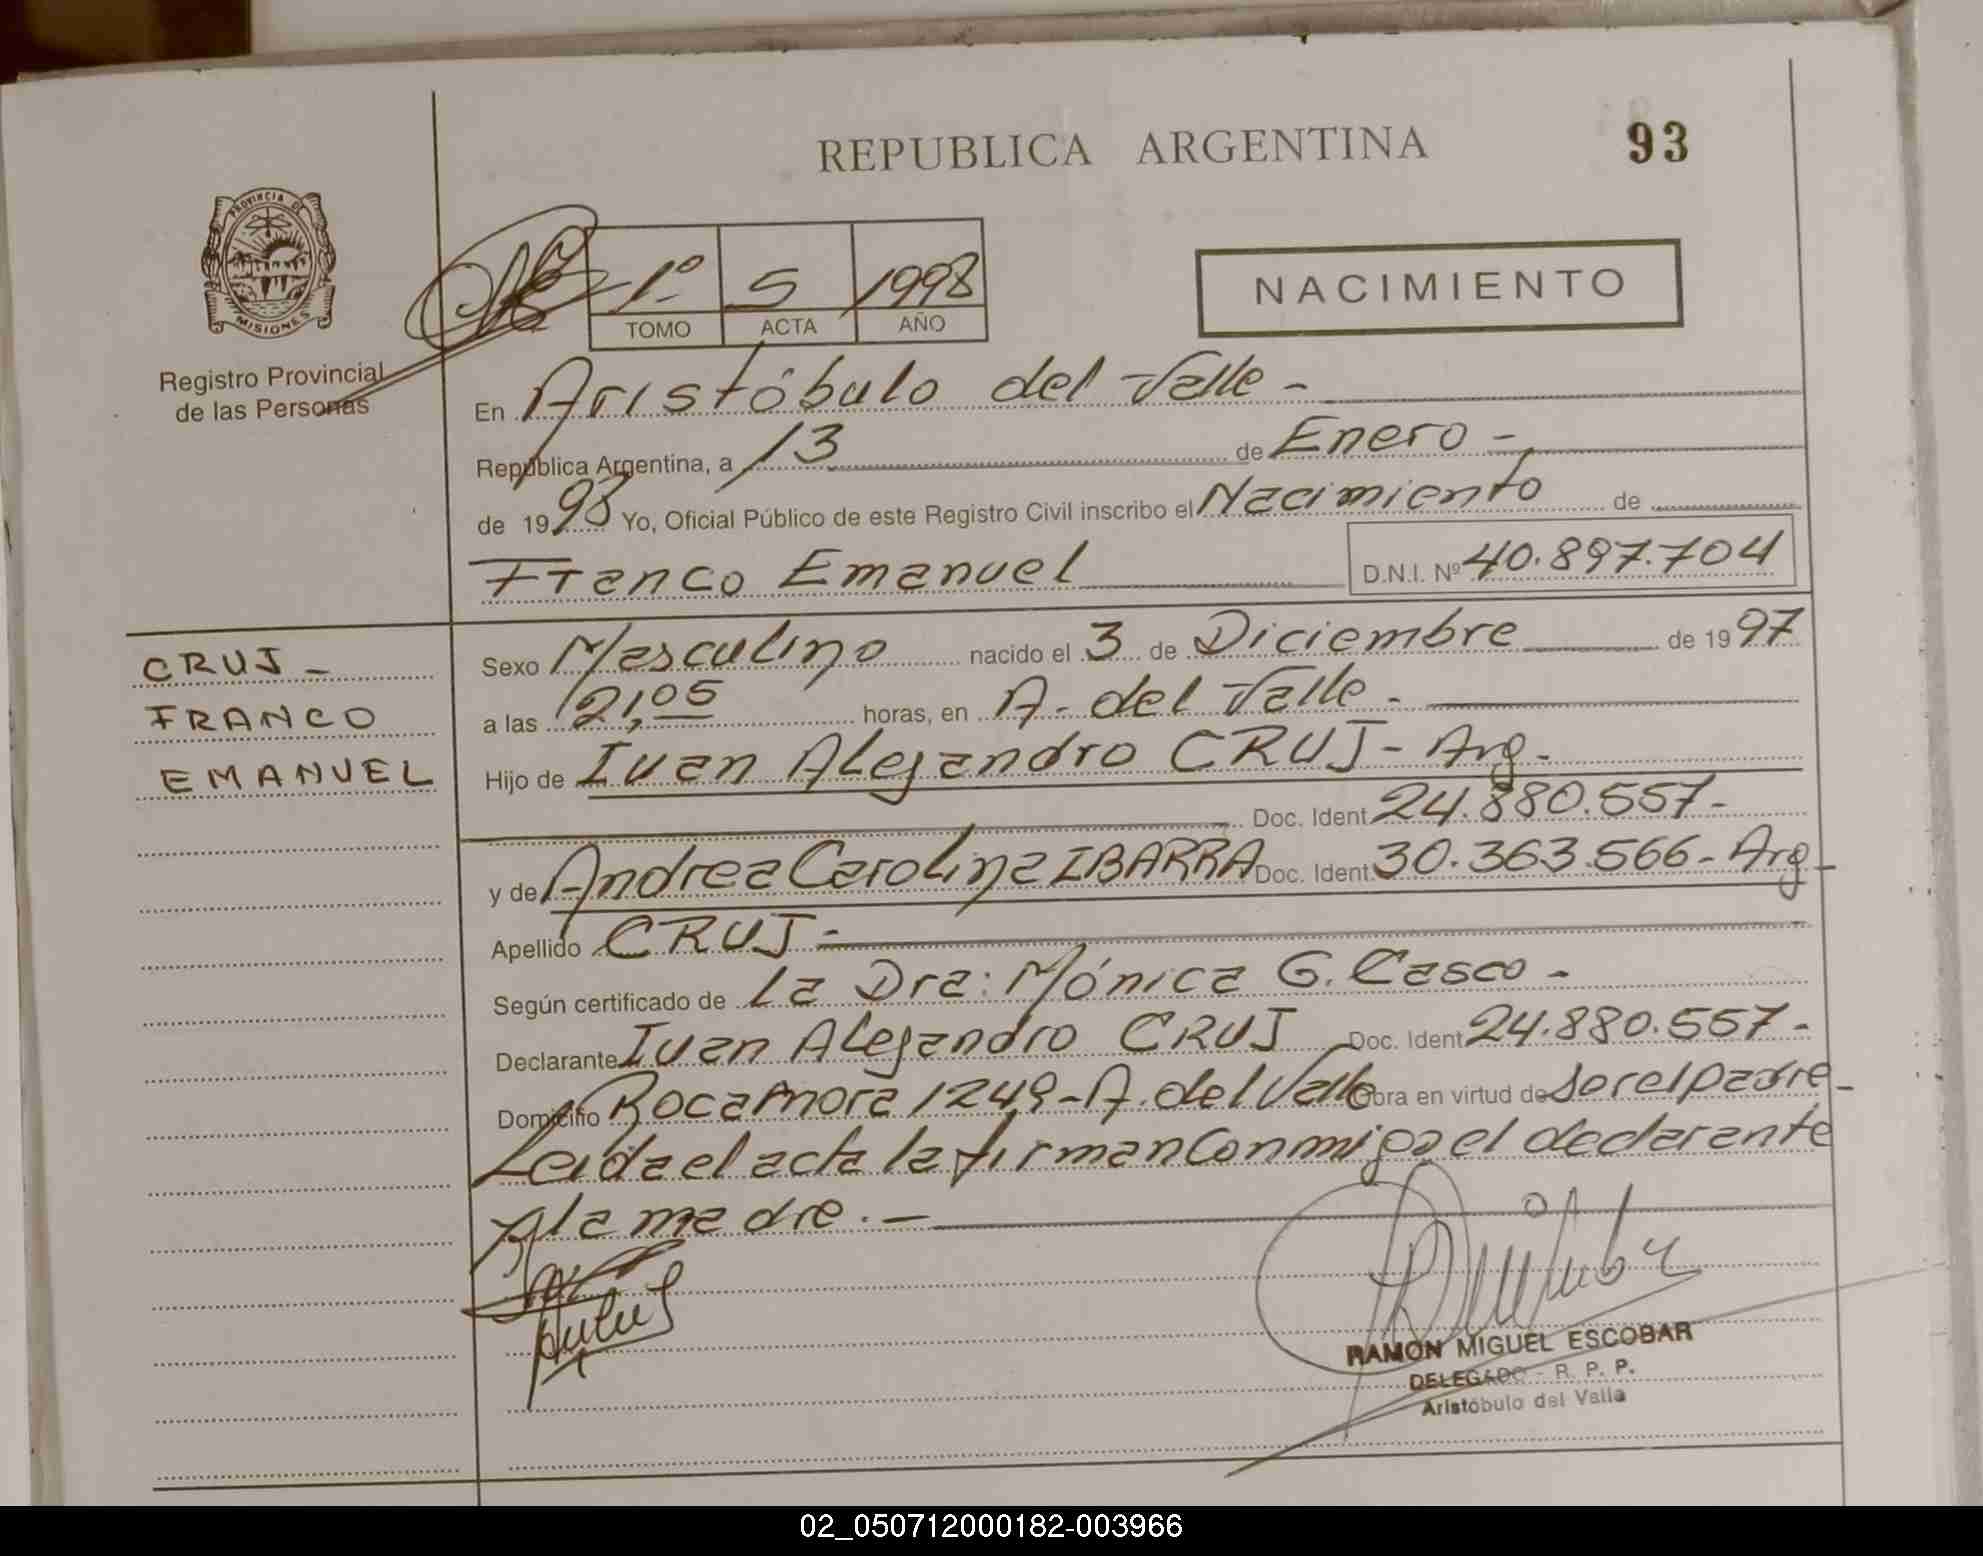 REPUBLICA ARGENTINA
93
PROVINCIA DE
MISIONES
Registro Provincial
de las Personas
1º 5 1998
TOMO ACTA AÑO
NACIMIENTO
En Aristóbulo del Valle -
República Argentina, a 13 de Enero -
de 1998 Yo, Oficial Público de este Registro Civil inscribo el Nacimiento de
Franco Emanuel D.N.I. Nº 40.897.704
CRUJ -
FRANCO
EMANUEL
Sexo Masculino nacido el 3 de Diciembre de 1997
a las 21,05 horas, en A. del Valle -
Hijo de Ivan Alejandro CRUJ - Arg -
Doc. Ident 24.880.557 -
y de Andrea Carolina IBARRA Doc. Ident 30.363.566 - Arg -
Apellido CRUJ -
Según certificado de la Dra: Mónica G. Casco -
Declarante Ivan Alejandro CRUJ Doc. Ident 24.880.557 -
Domicilio Rocamora 1249 - A. del Valle Obra en virtud de ser el padre -
Leida el acta la firman conmigo el declarante
y la madre . -
RAMON MIGUEL ESCOBAR
DELEGADO - R. P. P.
Aristóbulo del Valle
02_050712000182-003966